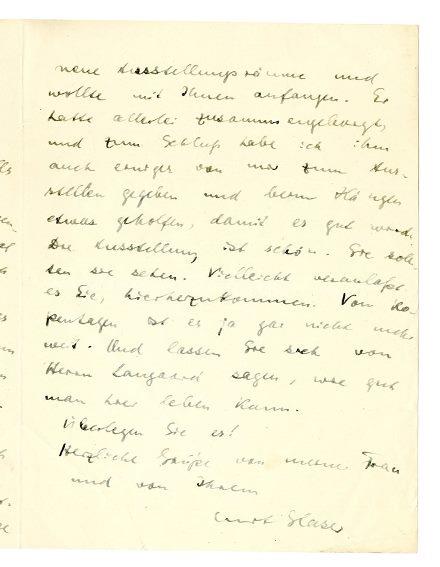 neue Ausstellungsräume und
wollte mit Ihnen anfangen. Er
hatte allerlei zusammengeborgt,
und zum Schluß habe ich ihm
auch einiges von mir zum Aus-
stellen gegeben und beim Hängen
etwas geholfen, damit es gut wurde.
Die Ausstellung ist schön. Sie soll-
ten sie sehen. Vielleicht veranlaßt
es Sie, hierherzukommen. Von Ko-
penhagen ist es ja gar nicht mehr
weit. Und lassen Sie sich von
Herrn Langaard sagen, wie gut
man hier leben kann.
Überlegen Sie es!
Herzliche Grüße von meiner Frau
und von Ihrem
Curt Glaser